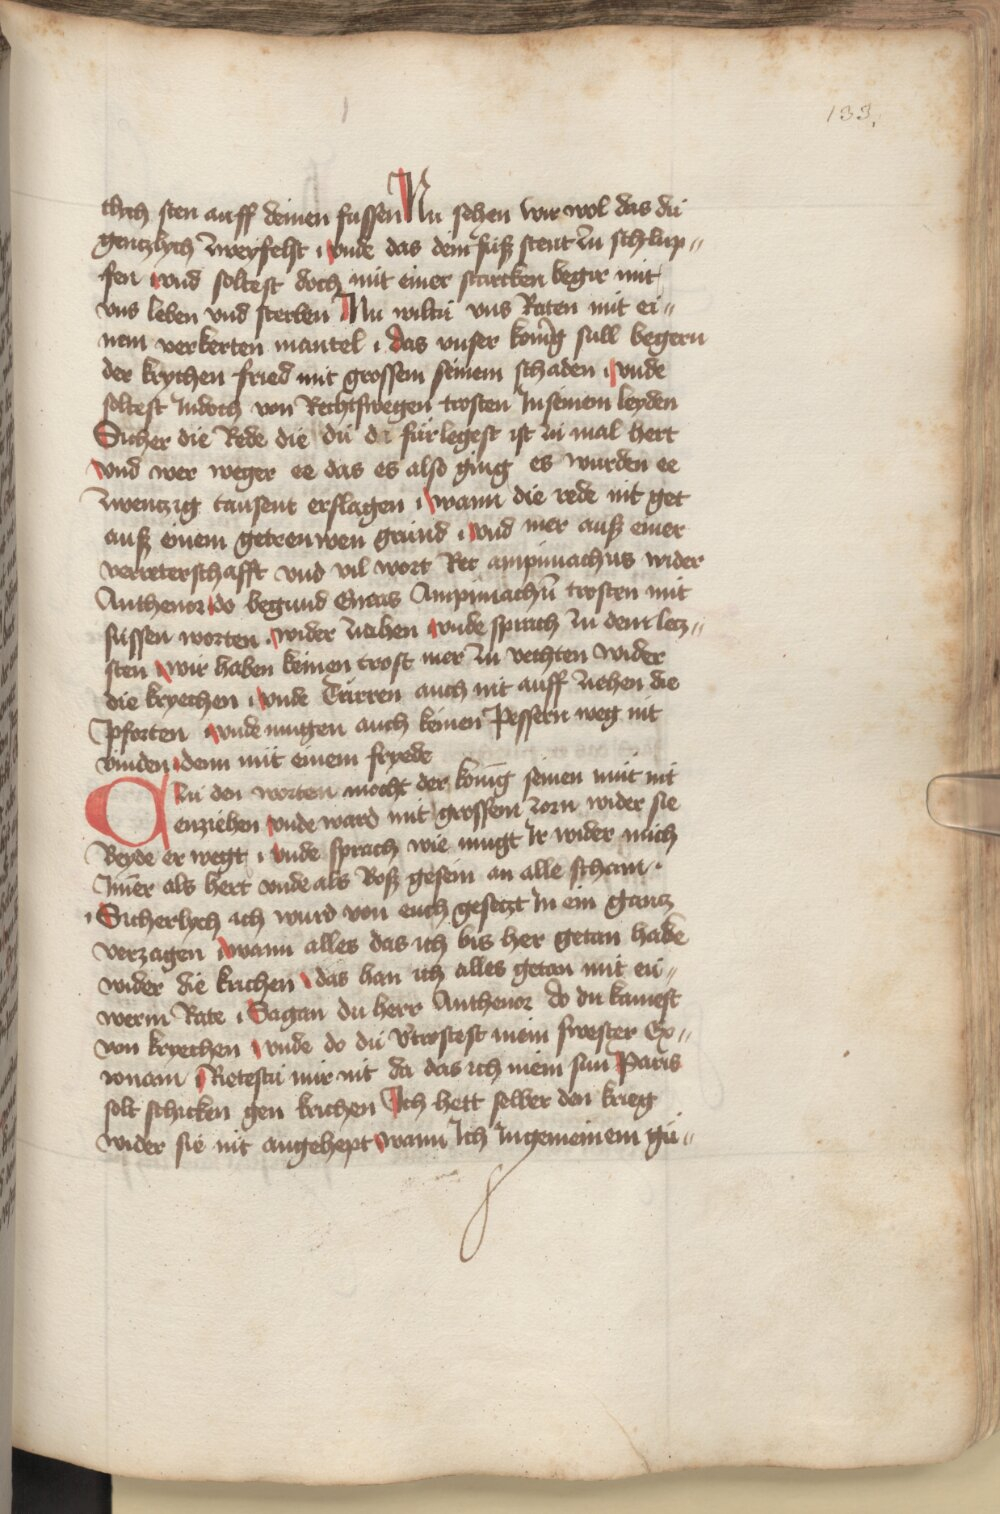 133.
tlych sten auff deinen fussen Nu sehen wir wol das du
gentzlych zweyfelst vnde das dein fuß stent zu schlup„
fen vnd soltest doch mit einer starcken begir mit
vns leben vnd sterben Nu wiltu vns Raten mit ei„
nem verkerten mantel das vnser konig sull begern
der krychen fried mit grossem seinem schaden vnde
soltest In doch von Rechtswegen trosten In seinem leyden
Sicher die Rede die du da fürlegest ist zu mal hert
vnd wer weger ee das es also ging es wurden ee
zwentzig tausent erslagen wann die rede nit get
auß einem getreuwen grund vnd mer auß einer
verreterschafft vnd vil wort Ret ampimachus wider
Anthenor do begund Eneas Ampimachū trosten mit
süssen worten wider nahen vnde sprach zu dem letz„
sten wir haben keinen trost mer zu vechten wider
die kryechen vnde Türren auch nit auff ziehen die
Pforten vnde mugen auch keinen Pessern weg nit
vinden denn mit einem fryede
Zu den worten mocht der konig seinen mut nit
enziehen vnde ward mit grossem zorn wider sie
Beyde er wegt vnde sprach wie mugt Ir wider mich
Imer als hert vnde als Boß gesein an alle scham
Sicherlych ich wurd von euch gesetzt In ein gantz
verzagen wann alles das ich bis her getan habe
wider die krichen das han ich alles getan mit eu„
werm Rate Sagan du herr Anthenor do du kamest
von kryechen vnde do du v̄trostest mein swester Ex„
ionam Rietestu mir nit da das ich mein sun Paris
solt schicken gen krichen Ich hett selber den krieg
wider sie nit angehept wann Ich In gemeinem gu„